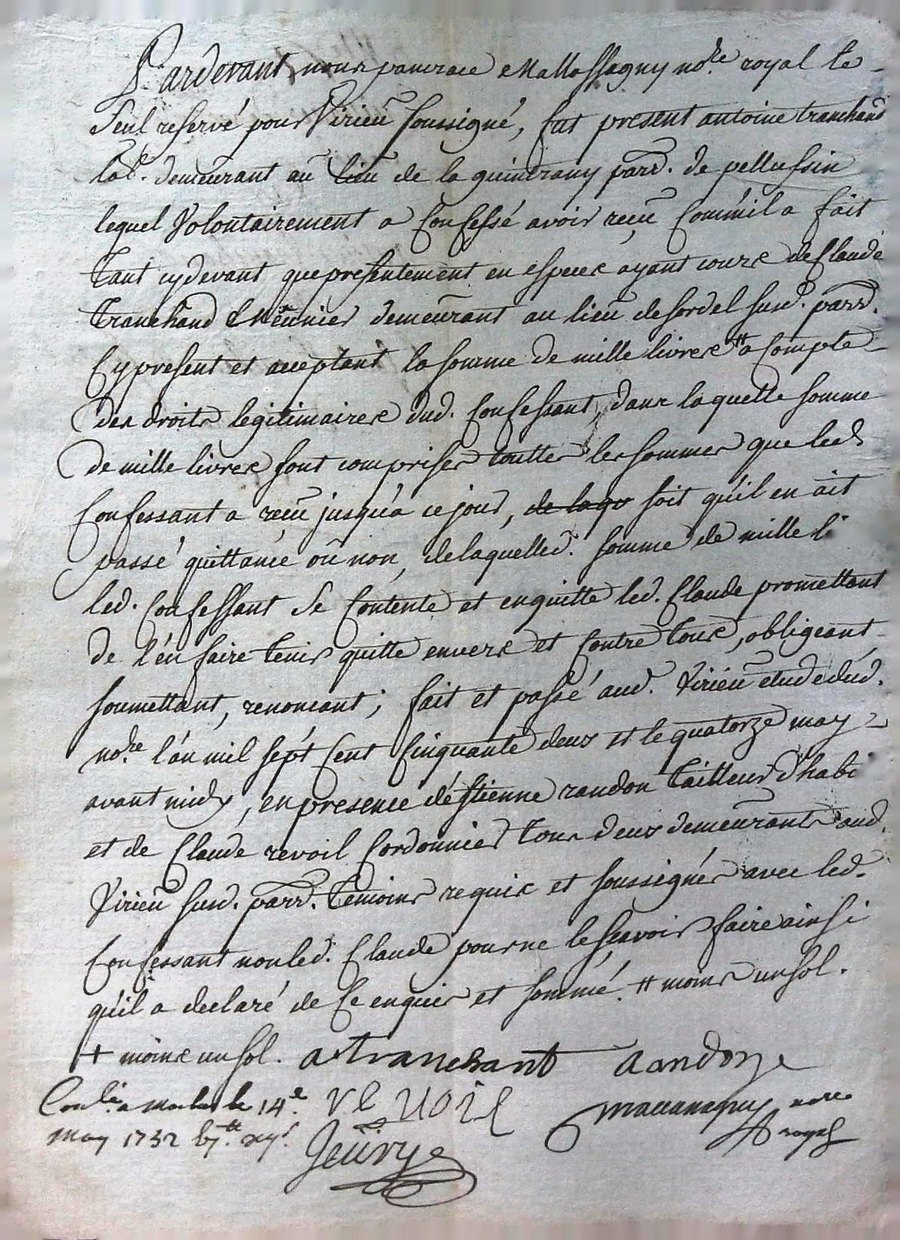 Pardevant nous pancrace Mallassagny no.re royal le
Seul reservé pour Virieu soussigné, fut present antoine tranchand
lab.r demeurant au lieu de la quintrany parr. de pellussin
lequel Volontairement a Confessé avoir reçu Comme il a fait
tant cydevant que presentement en especes ayant cours de Claude
tranchand Meunier demeurant au lieu de sordel susd. parr.
Cy present et acceptant la somme de mille livres # a Compte
des droits legitimaires dud. Confessant, dans laquelle somme
de mille livres sont comprises touttes les sommes que led.
Confessant a reçu jusqu'a ce jour, de laqu soit qu'il en ait
passé quittance ou non, de laquelled. somme de mille li
led. Confessant Se Contente et en quitte led. Claude promettant
de l'en faire tenir quitte envers et Contre tous, obligeant,
soumettant, renoncant; fait et passé aud. Virieu etude dud.
no.re l'an mil sept Cent Cinquante deux et le quatorze may
avant midy, en presence d'Estienne randon tailleur d'habi
et de Claude revoil Cordonnier tous deux demeurants aud.
Virieu susd. parr. temoins requis et soussignés avec led.
Confessant non led. Claude pour ne le sçavoir faire ainsi
qu'il a declaré de Ce enquis et sommé. # moins un sol.
# moins un sol. a tranchant Randon
Con.lé a le 14.e revoil
may 1752 notre
royal